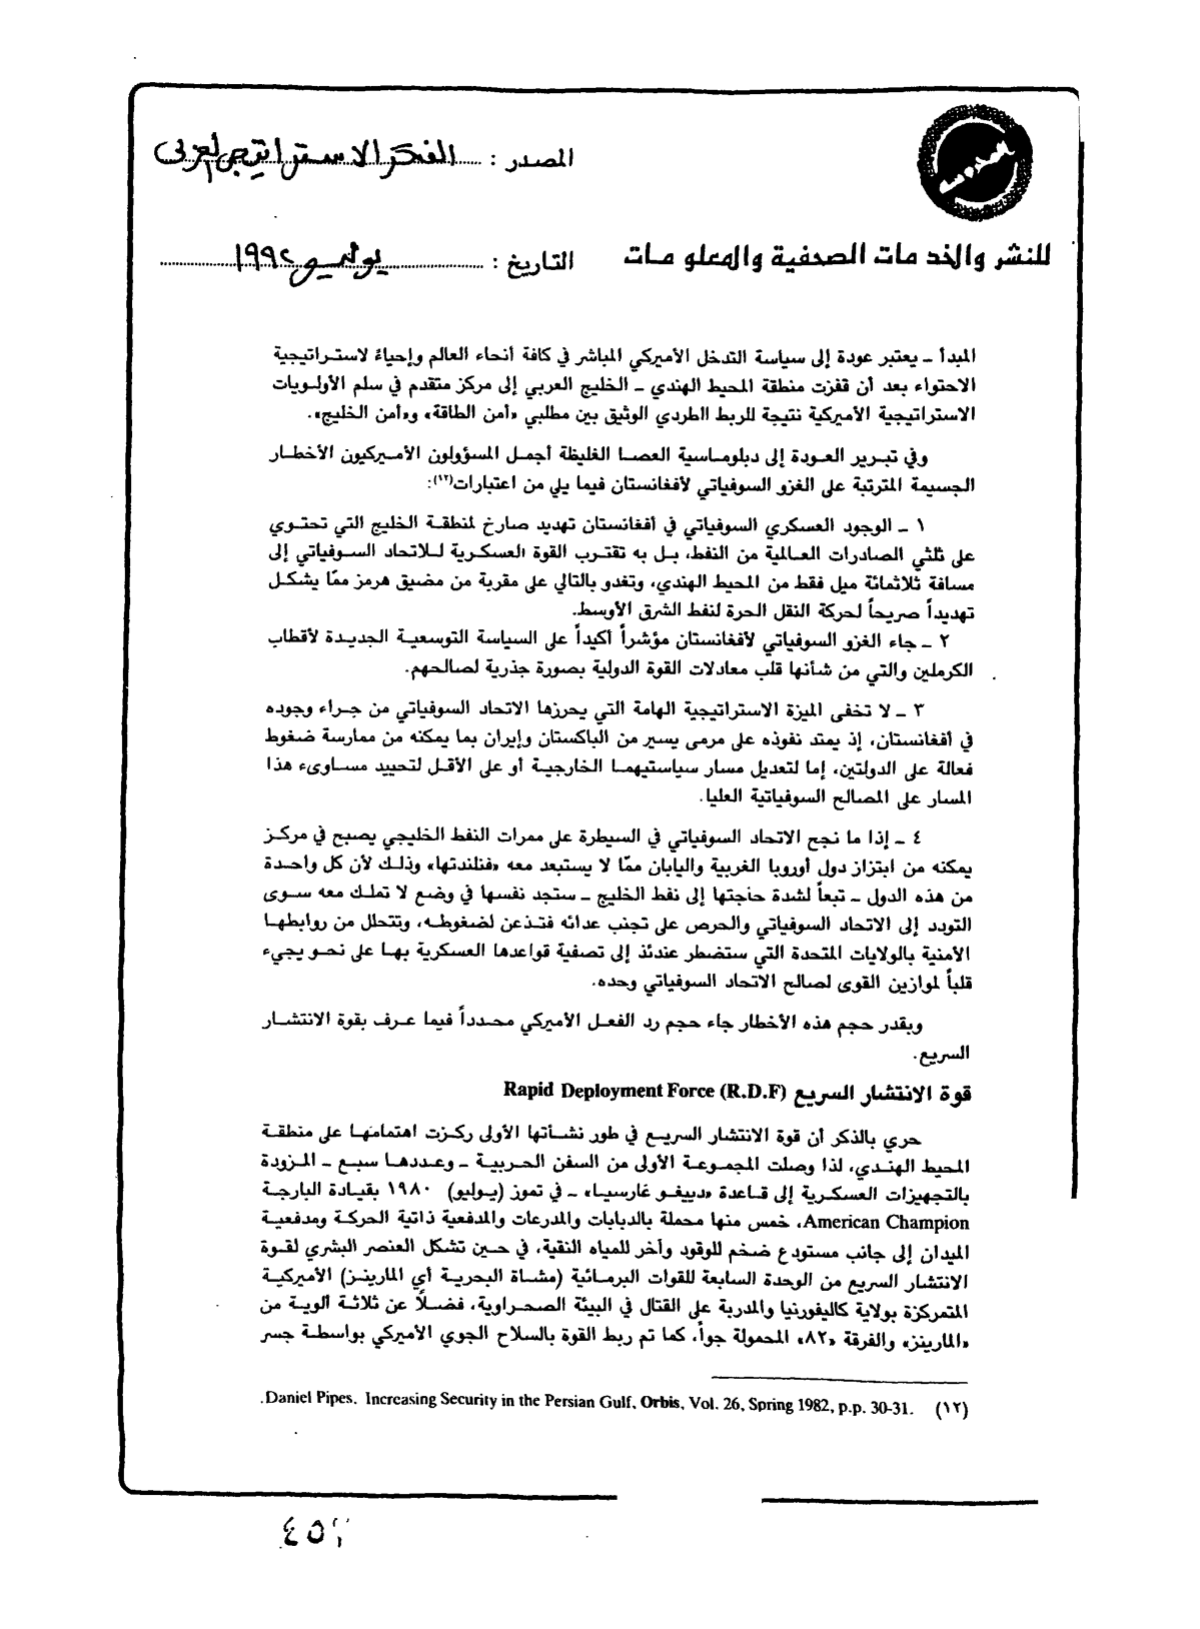 المحروسة
المصدر : الفكر الاستراتيجي العربي
للنشر والخدمات الصحفية والمعلومات
التاريخ : يوليو ١٩٩٢
المبدأ ـ يعتبر عودة إلى سياسة التدخل الأميركي المباشر في كافة أنحاء العالم وإحياءً لاستراتيجية
الاحتواء بعد أن قفزت منطقة المحيط الهندي ـ الخليج العربي إلى مركز متقدم في سلم الأولويات
الاستراتيجية الأميركية نتيجة للربط الطردي الوثيق بين مطلبي «أمن الطاقة» و«أمن الخليج».
وفي تبرير العودة إلى دبلوماسية العصا الغليظة أجمل المسؤولون الأميركيون الأخطار
الجسيمة المترتبة على الغزو السوفياتي لأفغانستان فيما يلي من اعتبارات(١٢):
١ ـ الوجود العسكري السوفياتي في أفغانستان تهديد صارخ لمنطقة الخليج التي تحتوي
على ثلثي الصادرات العالمية من النفط، بل به تقترب القوة العسكرية للاتحاد السوفياتي إلى
مسافة ثلاثمائة ميل فقط من المحيط الهندي، وتغدو بالتالي على مقربة من مضيق هرمز ممّا يشكل
تهديداً صريحاً لحركة النقل الحرة لنفط الشرق الأوسط.
٢ ـ جاء الغزو السوفياتي لأفغانستان مؤشراً أكيداً على السياسة التوسعية الجديدة لأقطاب
الكرملين والتي من شأنها قلب معادلات القوة الدولية بصورة جذرية لصالحهم.
٣ ـ لا تخفى الميزة الاستراتيجية الهامة التي يحرزها الاتحاد السوفياتي من جراء وجوده
في أفغانستان، إذ يمتد نفوذه على مرمى يسير من الباكستان وإيران بما يمكنه من ممارسة ضغوط
فعالة على الدولتين، إما لتعديل مسار سياستيهما الخارجية أو على الأقل لتحييد مساوىء هذا
المسار على المصالح السوفياتية العليا.
٤ ـ إذا ما نجح الاتحاد السوفياتي في السيطرة على ممرات النفط الخليجي يصبح في مركز
يمكنه من ابتزاز دول أوروبا الغربية واليابان ممّا لا يستبعد معه «فنلندتها» وذلك لأن كل واحدة
من هذه الدول ـ تبعاً لشدة حاجتها إلى نفط الخليج ـ ستجد نفسها في وضع لا تملك معه سوى
التودد إلى الاتحاد السوفياتي والحرص على تجنب عدائه فتذعن لضغوطه، وتتحلل من روابطها
الأمنية بالولايات المتحدة التي ستضطر عندئذ إلى تصفية قواعدها العسكرية بها على نحو يجيء
قلباً لموازين القوى لصالح الاتحاد السوفياتي وحده.
وبقدر حجم هذه الأخطار جاء حجم رد الفعل الأميركي محدداً فيما عرف بقوة الانتشار
السريع.
قوة الانتشار السريع Rapid Deployment Force (R.D.F)
حري بالذكر أن قوة الانتشار السريع في طور نشأتها الأولى ركزت اهتمامها على منطقة
المحيط الهندي، لذا وصلت المجموعة الأولى من السفن الحربية ـ وعددها سبع ـ المزودة
بالتجهيزات العسكرية إلى قاعدة «دييغو غارسيا» ـ في تموز (يوليو) ١٩٨٠ بقيادة البارجة
American Champion، خمس منها محملة بالدبابات والمدرعات والمدفعية ذاتية الحركة ومدفعية
الميدان إلى جانب مستودع ضخم للوقود وآخر للمياه النقية، في حين تشكل العنصر البشري لقوة
الانتشار السريع من الوحدة السابعة للقوات البرمائية (مشاة البحرية أي المارينز) الأميركية
المتمركزة بولاية كاليفورنيا والمدربة على القتال في البيئة الصحراوية، فضلاً عن ثلاثة ألوية من
«المارينز» والفرقة «٨٢» المحمولة جواً، كما تم ربط القوة بالسلاح الجوي الأميركي بواسطة جسر
(١٢) Daniel Pipes. Increasing Security in the Persian Gulf, Orbis, Vol. 26, Spring 1982, p.p. 30-31.